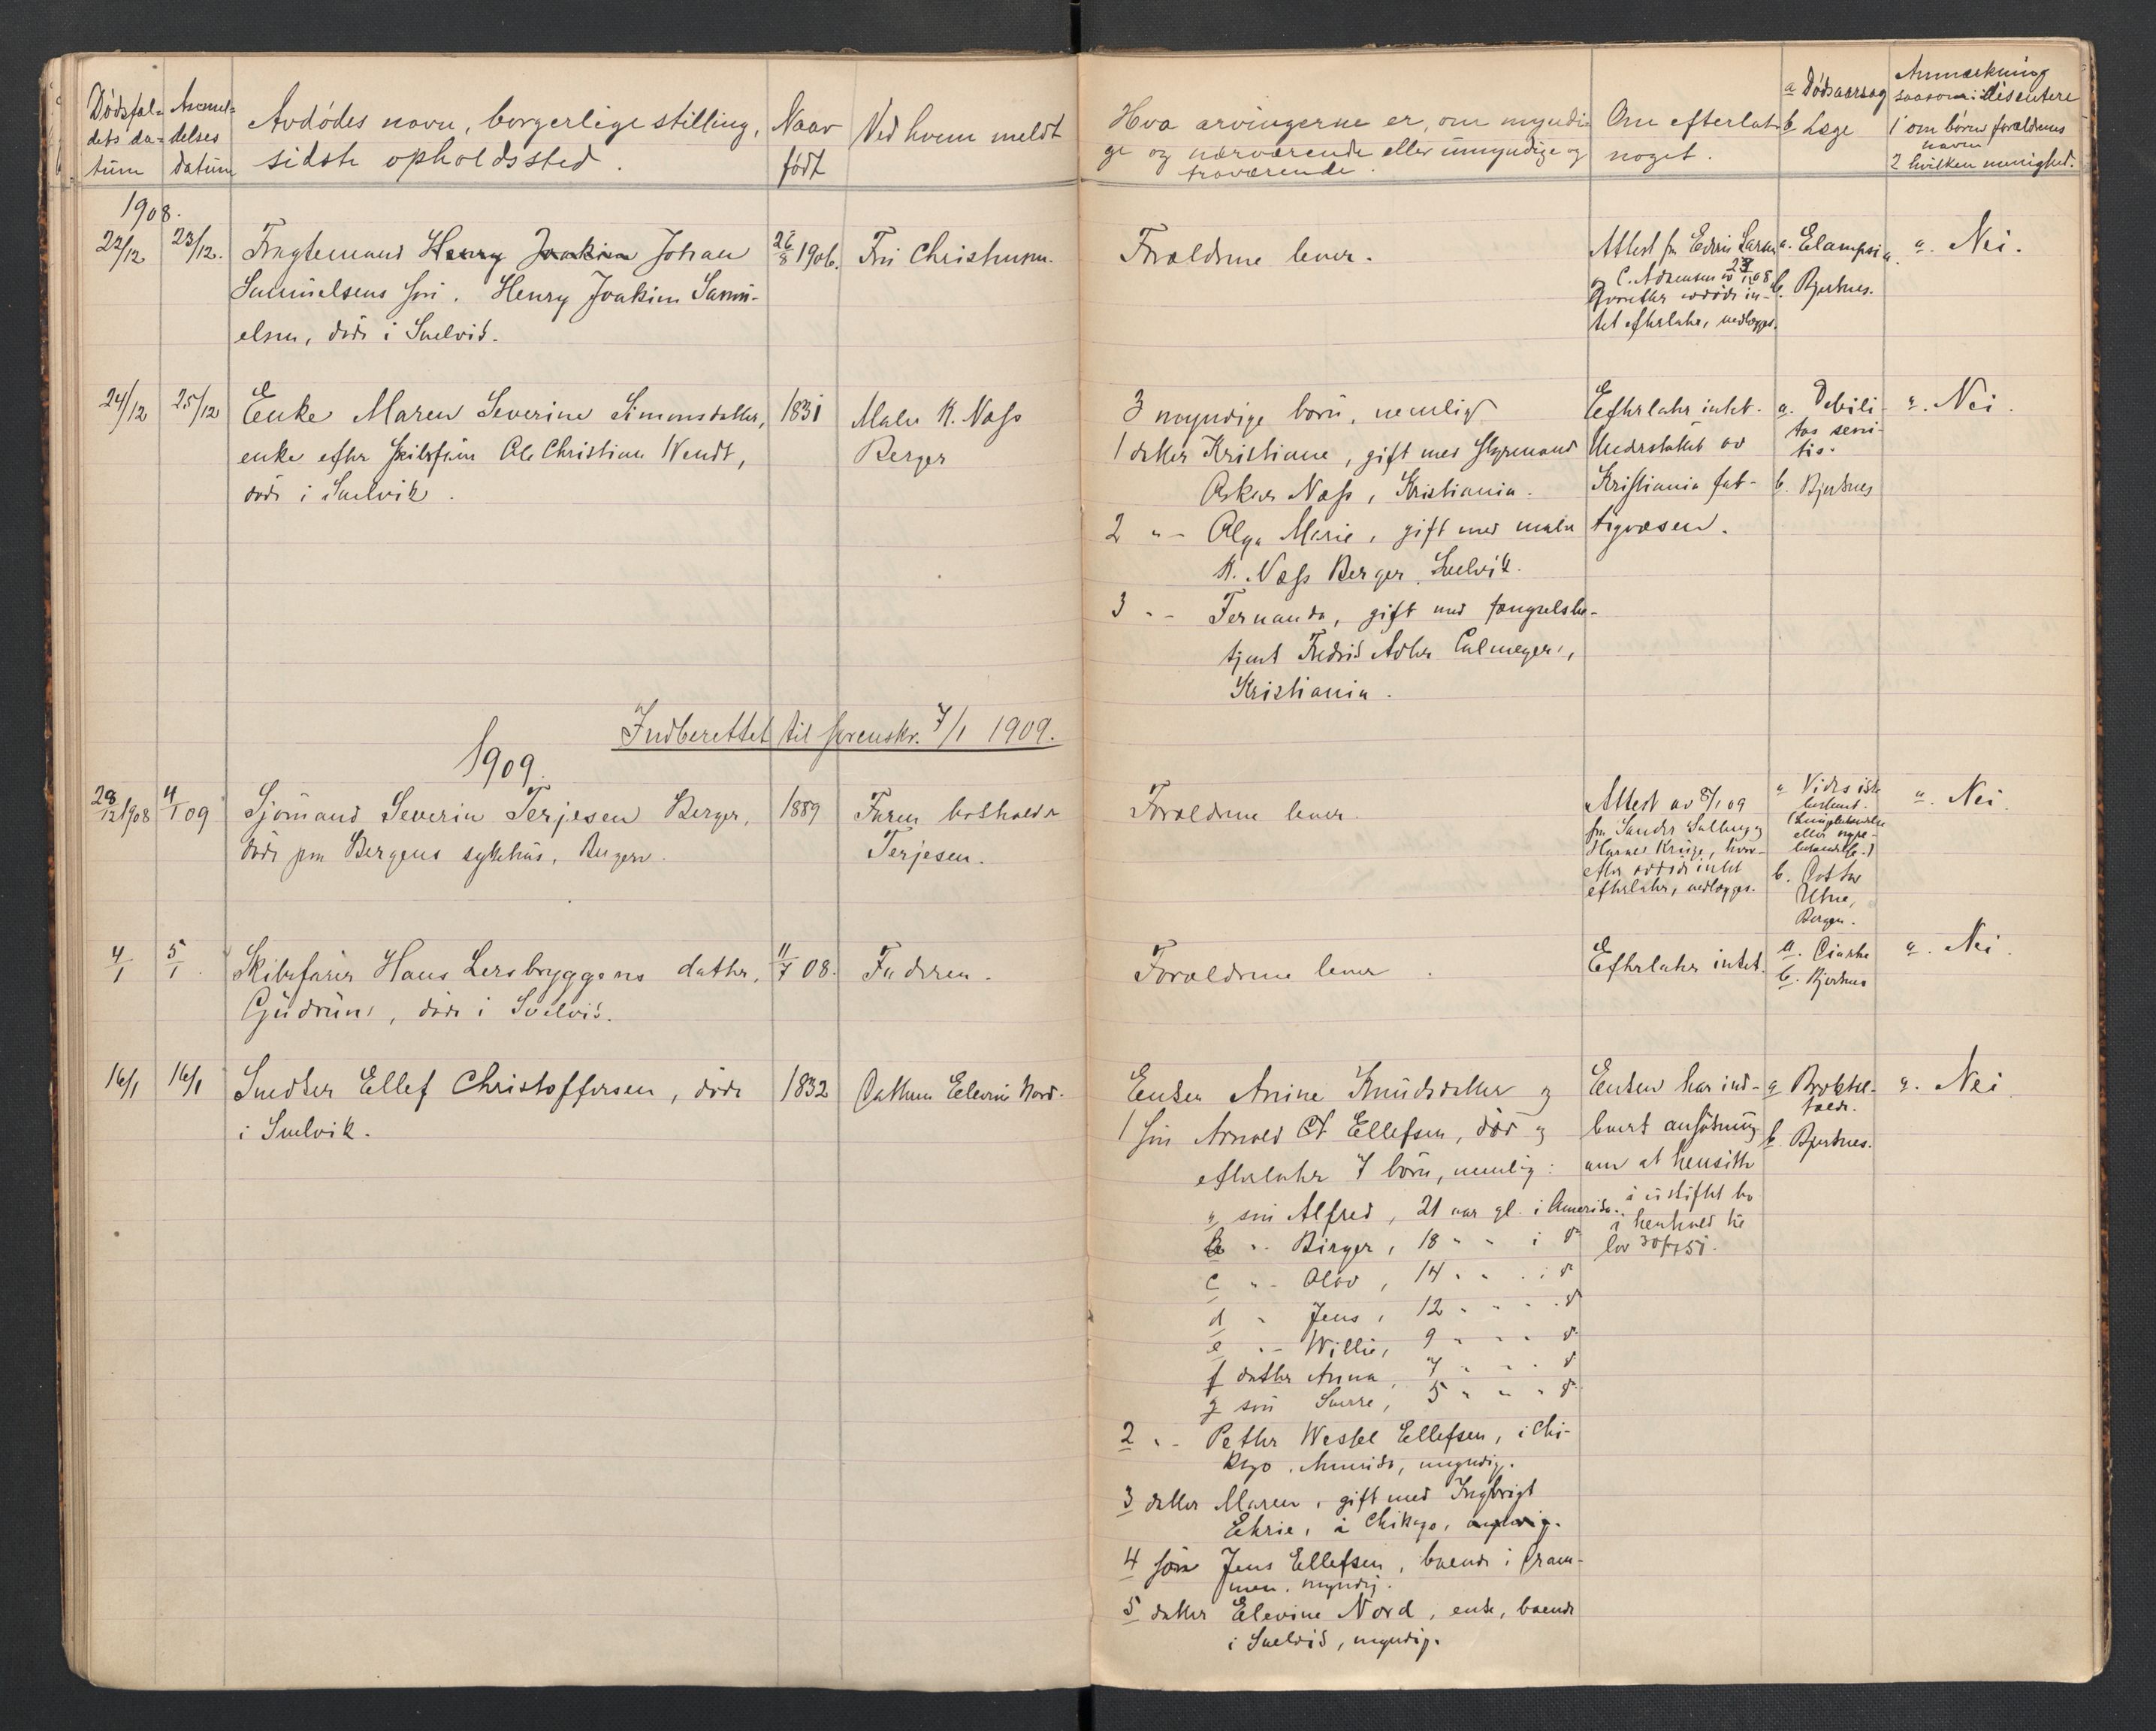 Dødsfal- Anmel- Avdødes navn, borgerlige stilling, Naar Ved hvem meldt
dets da- delses sidste opholdssted. født
tum datum
Hva arvingerne er, om myndi- Om efterlatt a Dødsaarsag Anmærkning
ge og nærværende eller umyndige og noget. b Læge saasom: dissentere
fraværende. 1 om børn forældrenes
navn
2 hvilken menighed.
1908.
22/12 23/12. Fragtemand Henry Joakim Johan 26/8 1906. Fru Christensen.
Samuelsens søn. Henry Joakim Samu-
elsen, død i Svelvik.
Forældrene lever.
Attest fra Edvin Larsen
og C. Adamsen av 23/12 08
hvorefter avdøde in-
tet efterlater, vedlægges.
a. Elampsia.
b. Bjertnes.
a. Nei.
24/12 25/12 Enke Maren Severine Simonsdatter, 1831 Maler K. Næss
enke efter skibsfører Ole Christian Wendt, Berger
død i Svelvik.
3 myndige børn, nemlig
1 datter Kristiane, gift med styrmand
Oskar Næss, Kristiania.
2 " - Olga Marie, gift med maler
K. Næss Berger, Svelvik.
3 " - Fernanda, gift med fængselsbe-
tjent Fredrik Adler Calmeyer,
Kristiania.
Efterlater intet.
Understøttet av
Kristiania fat-
tigvæsen.
a. Debili-
tas seni-
lis.
b. Bjertnes
a. Nei.
Indberettet til sorenskr. 7/1 1909.
1909.
28/12 1908 4/1 09 Sjømand Severin Terjesen Berger, 1889 Faren
døde paa Bergens sykehus, Bergen. Terjesen.
Forældrene lever.
Attest av 8/1 09
fra Sander Salberg og
Kruge, hvor-
efter avdøde intet
efterlater, vedlægges.
a Vides ikke
bestemt.
(Lungebetændelse
eller nyre-
betændelse.)
b. Doktor
Utne,
Bergen.
a. Nei.
4/1 5/1. Skibsfører Hans Lersbryggens datter, 11/7 08. Faderen.
Gudrun, død i Svelvik.
Forældrene lever.
Efterlater intet.
b. Bjertnes
a. Nei.
16/1 16/1 Snedker Ellef Christoffersen, døde 1832 Datteren Elevine Nord.
i Svelvik.
Enken Anine Knudsdatter og
1 søn Arnold Ellefsen, død og
efterlater 7 børn, nemlig:
a søn Alfred, 21 aar gl. i Amerika.
b " - Birger, 18 " " i do
c " - Olav, 14 " " i do
d " Jens, 12 " " " do
e " - Willie, 9 " " " do
f datter Anna, 7 " " " do
g søn Sverre, 5 " " " do
2 " - Petter Wessel Ellefsen, i Chi-
kago, Amerika, myndig.
3 datter Maren, gift med Ingbrigt
Ekrie, i Chikago, myndig.
4 søn Jens Ellefsen, boende i Dram-
men, myndig.
5 datter Elevine Nord, enke, boende
i Svelvik, myndig.
Enken har ind-
levert ansøkning
om at hensitte
i uskiftet bo
i henhold til
lov 30/7 51.
a
b. Bjertnes.
a. Nei.